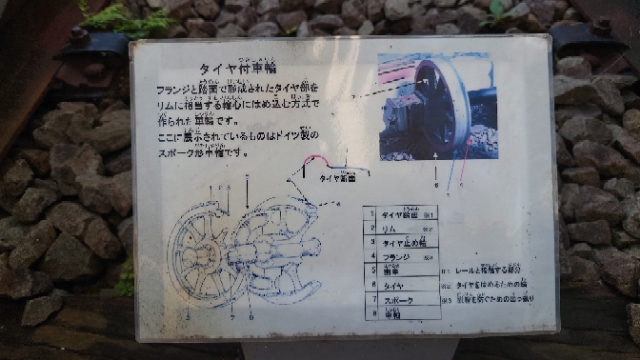 タイヤ付車輪
フランジと踏面で形成されたタイヤ部を
リムに相当する輪心にはめ込む方式で
作られた車輪です。
ここに展示されているものはドイツ製の
スポーク形車輪です。
タイヤ断面
1 タイヤ踏面 注1
2 リム 注2
3 タイヤ止め輪
4 フランジ 注3
5
6 タイヤ
7 スポーク
8 車軸
注1 レールと接触する部分
注2 タイヤをはめるための輪
注3 脱輪を防ぐための出っ張り